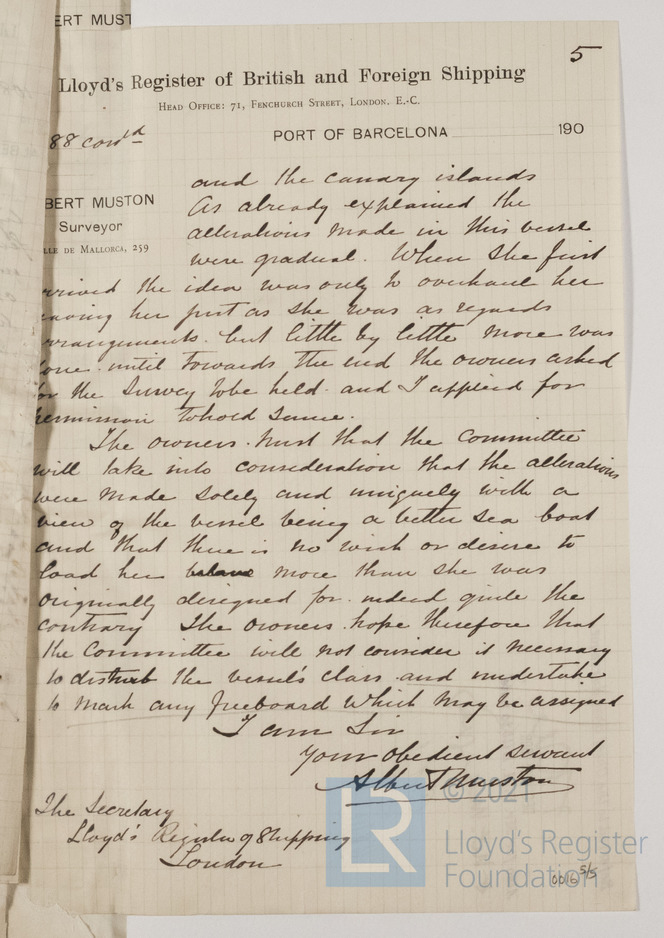 ERT MUST
5
Lloyd's Register of British and Foreign Shipping
HEAD OFFICE: 71, FENCHURCH STREET, LONDON. E.-C.
88 contd
PORT OF BARCELONA 190
BERT MUSTON
Surveyor
LLE DE MALLORCA, 259
and the canary islands
As already explained the
alterations made in this vessel
were gradual. When she first
rrived the idea was only to overhaul her
eaving her just as she was as regards
rrangements. but little by little more was
one until towards the end the owners asked
or the Survey to be held and I applied for
permission to hold same.
The owners trust that the Committee
will take into consideration that the alterations
were made solely and uniquely with a
view of the vessel being a better sea boat
and that there is no wish or desire to
load her more than she was
originally designed for indeed quite the
contrary The owners hope therefore that
the Committee will not consider it necessary
to disturb the vessel's class and undertake
to mark any freeboard which may be assigned
I am Sir
Your obedient servant
Albert Muston
The Secretary
Lloyd's Register of Shipping
London
© 2021
LR
Lloyd's Register
Foundation
0016 5/5